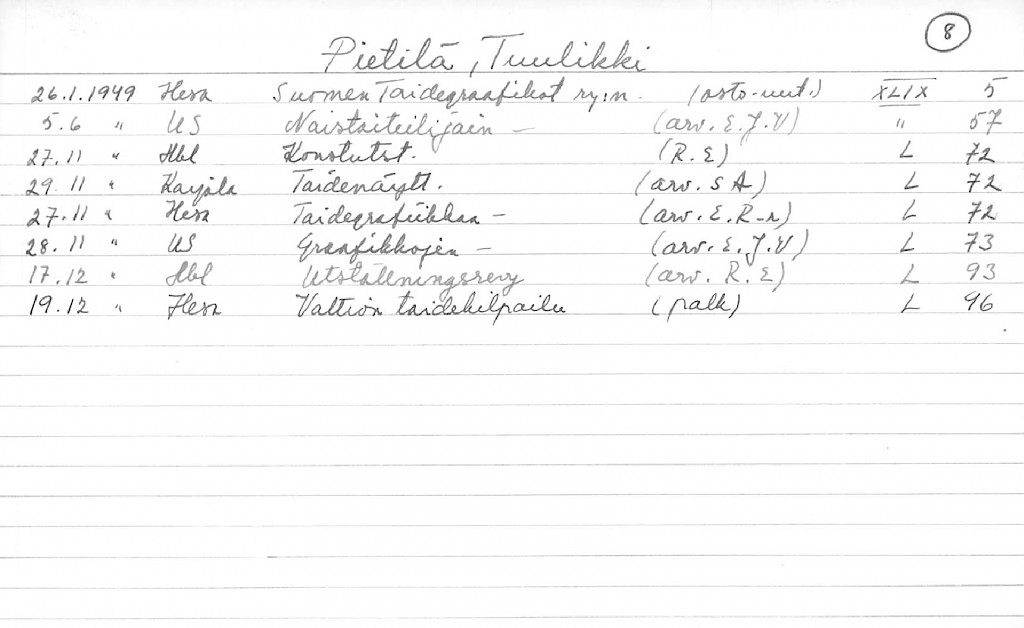 8
Pietilä, Tuulikki
26.1.1949 Hesa Suomen Taidegraafikot ry:n. (osto-uut.) XLIX 5
5.6 " US Naistaiteilijain — (arv. E.J.V) " 57
27.11 " Hbl Konstutst. (R.E) L 72
29.11 " Karjala Taidenäytt. (arv. S A) L 72
27.11 " Hesa Taidegrafiikkaa — (arv. E.R-n) L 72
28.11 " US Graafikkojen — (arv. E.J.V) L 73
17.12 " Hbl Utställningsrevy (arv. R.E) L 93
19.12 " Hesa Valtion taidekilpailu (palk) L 96